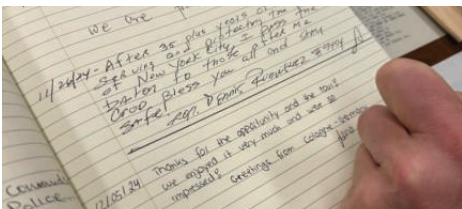 we are
11/26/24 - After 35 plus years of
serving and protecting the
of New York City, I pass the
baton to those after me
God bless you all and stay
safe.
12/05/24 Thanks for the opportunity and the tour!
we enjoyed it very much and were so
impressed! Greetings from Cologne - Germany
Police